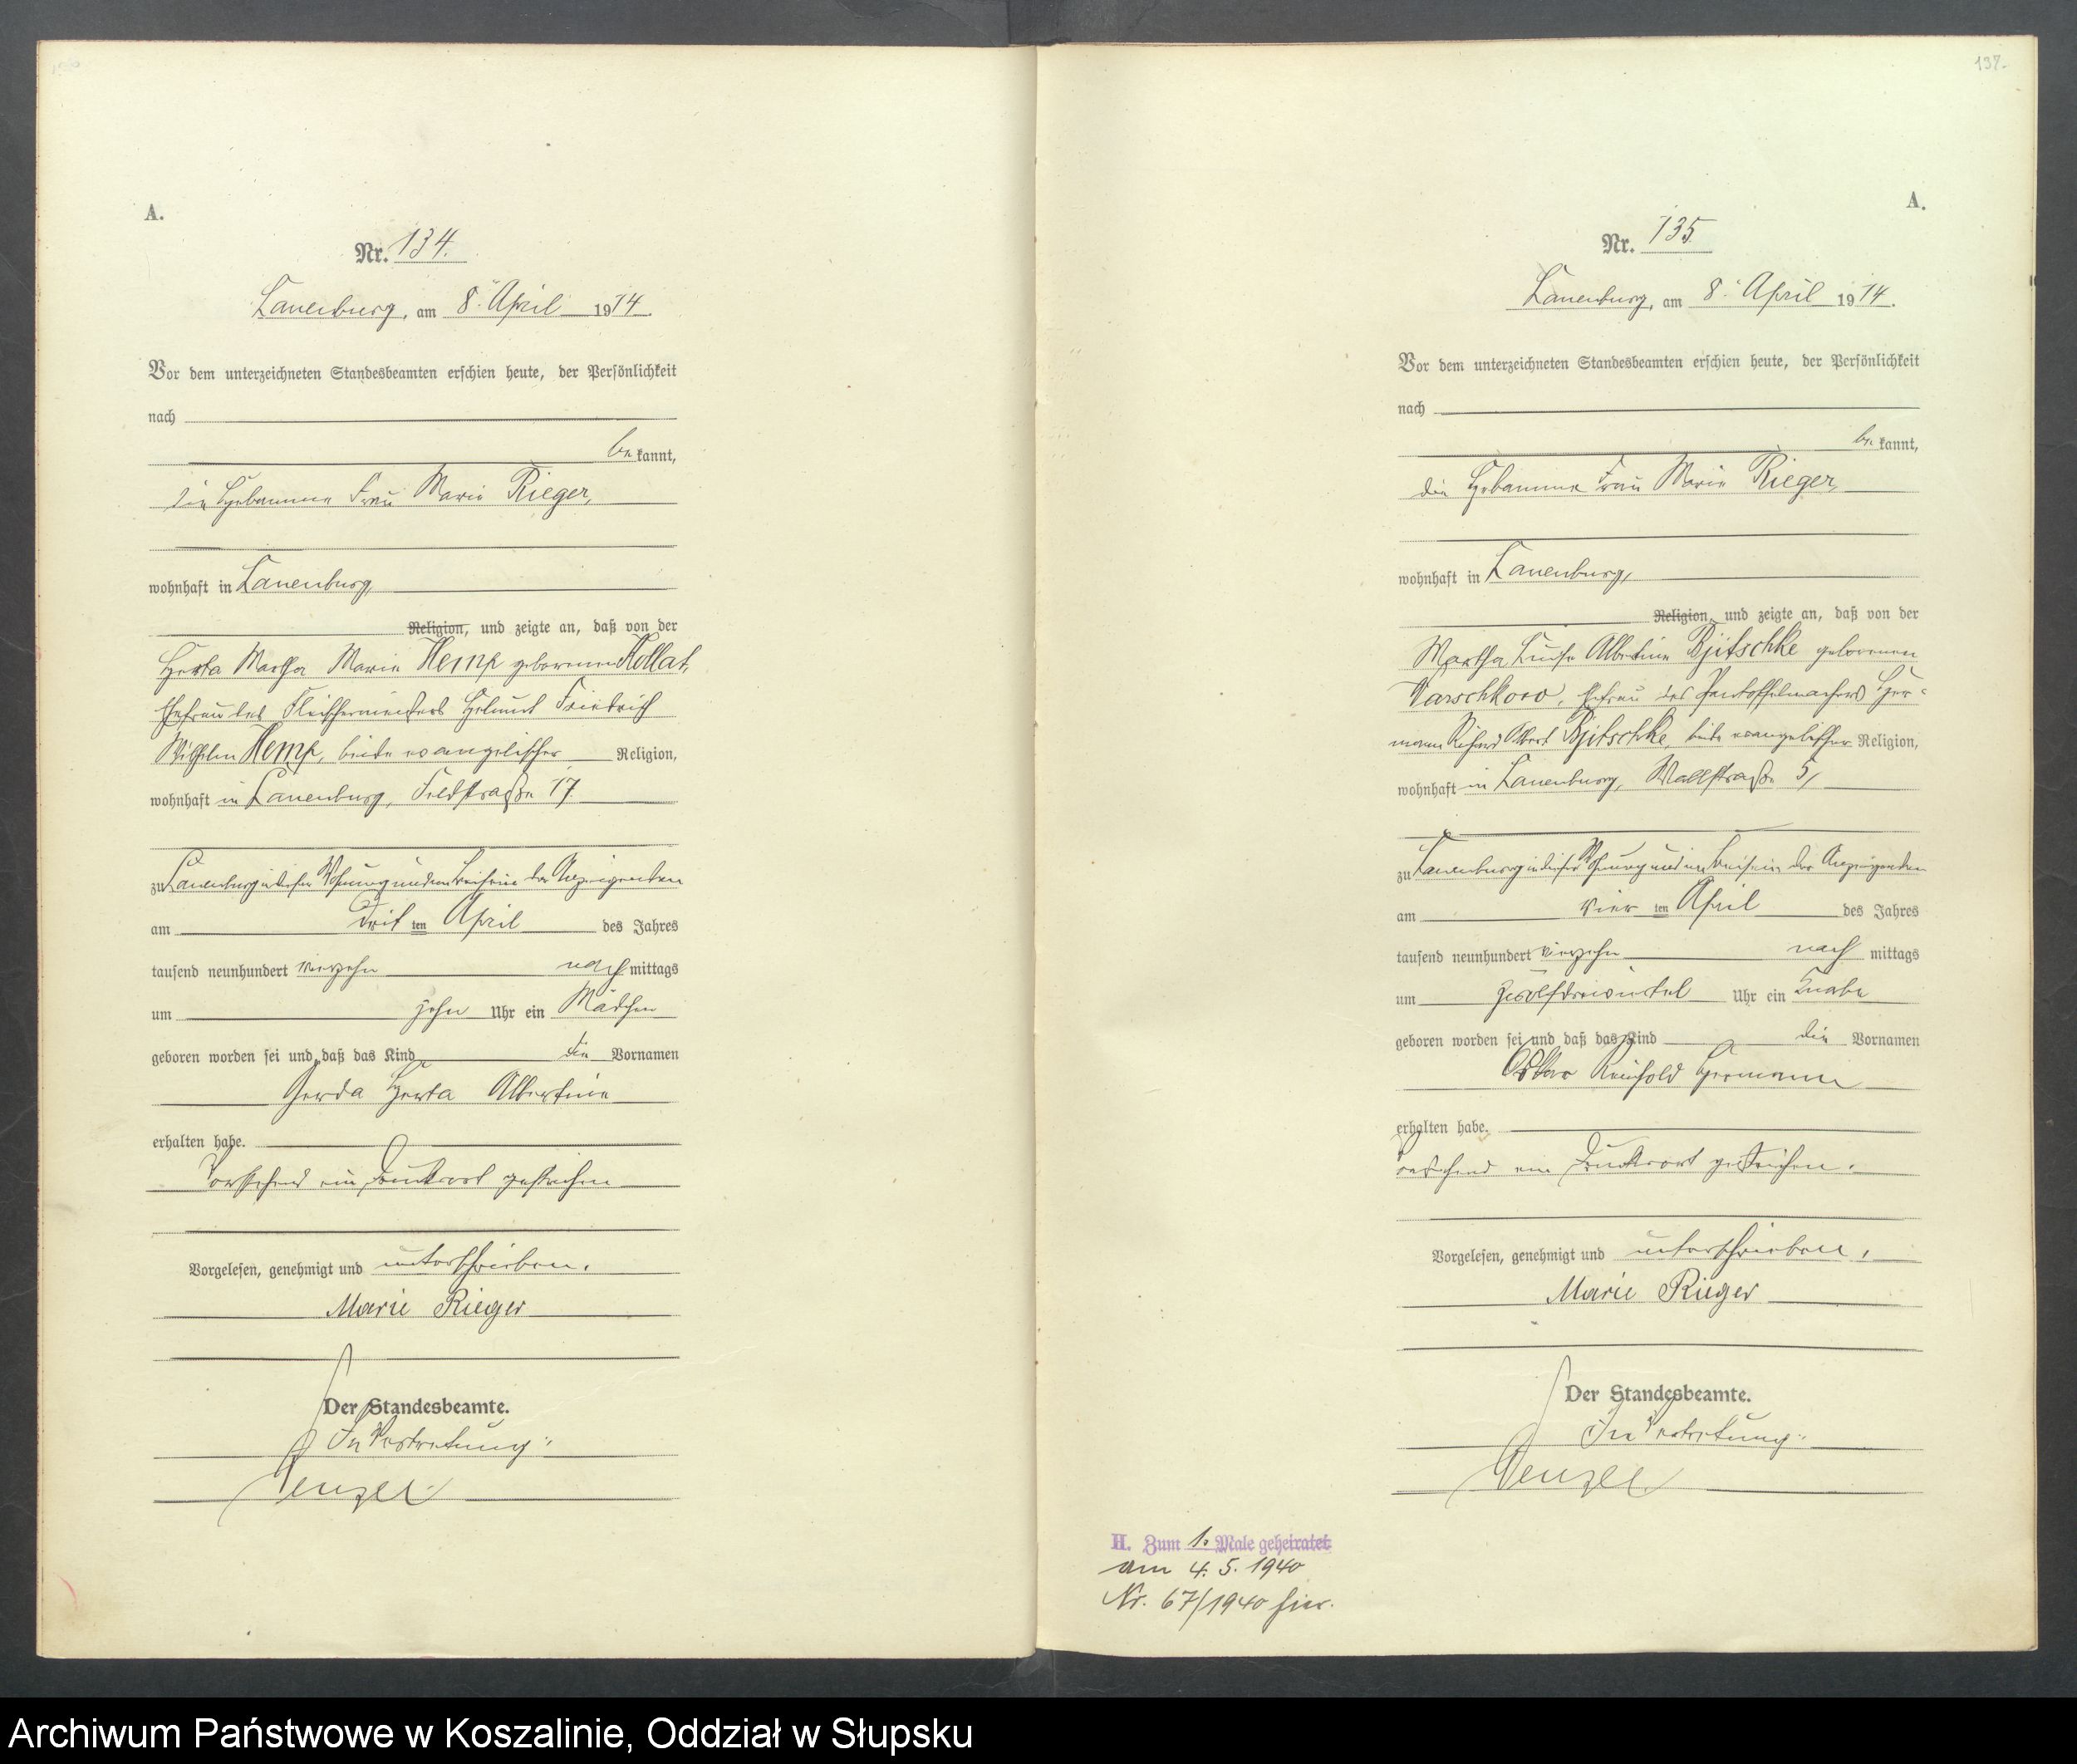 A.
Nr. 134.
Lauenburg, am 8. April 1914.
Vor dem unterzeichneten Standesbeamten erschien heute, der Persönlichkeit
nach
bekannt,
die Hebamme Frau Marie Rieger,
wohnhaft in Lauenburg,
Religion, und zeigte an, daß von der
Herta Martha Marie Hemp geborenen Kollat,
Ehefrau des Fleischermeisters Helmut Friedrich
Wilhelm Hemp, beide evangelischer Religion,
wohnhaft in Lauenburg, Feldstraße 17
zu Lauenburg in dieser Wohnung und im Beisein der Anzeigenden
am dritten April des Jahres
tausend neunhundert vierzehn nachmittags
um zehn Uhr ein Mädchen
geboren worden sei und daß das Kind die Vornamen
Gerda Herta Albertine
erhalten habe.
Vorstehend ein Druckwort gestrichen
Vorgelesen, genehmigt und unterschrieben.
Marie Rieger
Der Standesbeamte.
In Vertretung:
Wenzel
137.
A.
Nr. 135
Lauenburg, am 8. April 1914.
Vor dem unterzeichneten Standesbeamten erschien heute, der Persönlichkeit
nach
bekannt,
die Hebamme Frau Marie Rieger,
wohnhaft in Lauenburg,
Religion, und zeigte an, daß von der
Martha Luise Albertine geborenen
Ehefrau des Pantoffelmachers Her=
mann Richard Albert beide evangelischer Religion,
wohnhaft in Lauenburg, Wallstraße 5,
zu Lauenburg in dieser Wohnung und im Beisein der Anzeigenden
am vierten April des Jahres
tausend neunhundert vierzehn nachmittags
um zwölfdreiviertel Uhr ein Knabe
geboren worden sei und daß das Kind die Vornamen
Oskar Reinhold Hermann
erhalten habe.
Vorstehend ein Druckwort gestrichen.
Vorgelesen, genehmigt und unterschrieben.
Marie Rieger
Der Standesbeamte.
In Vertretung:
Wenzel
H. Zum 1. Male geheiratet
am 4. 5. 1940
Nr. 67/1940 hier.
Archiwum Państwowe w Koszalinie, Oddział w Słupsku